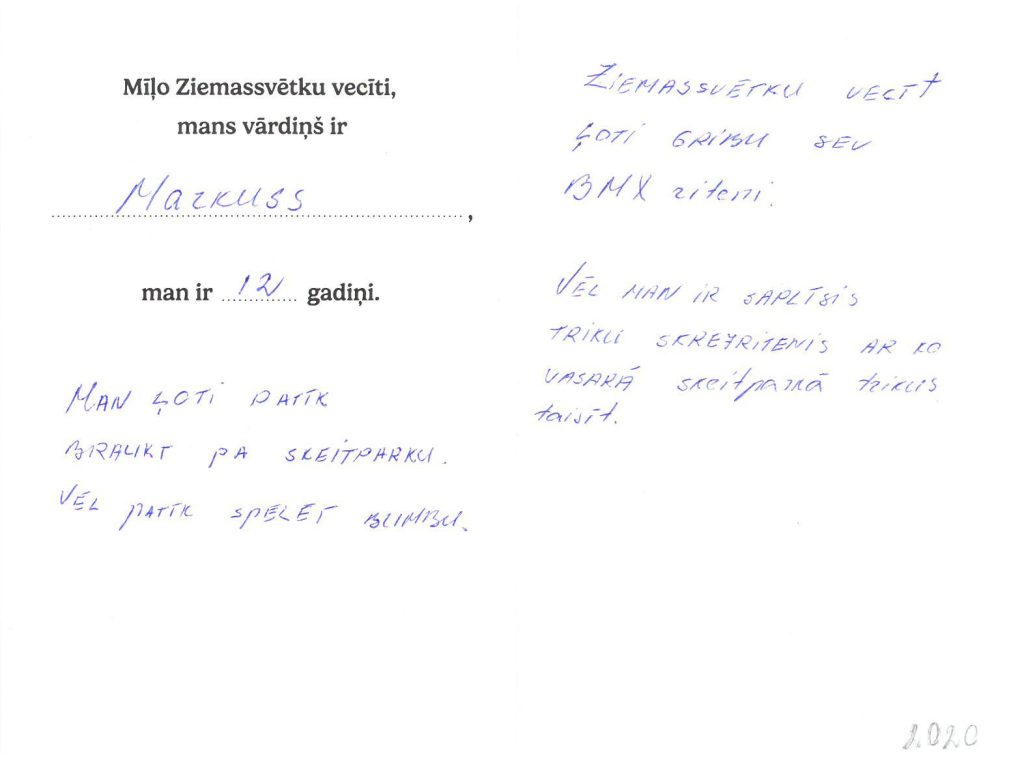 Mīļo Ziemassvētku vecīti,
mans vārdiņš ir
Markuss,
man ir 12 gadiņi.
MAN ĻOTI PATĪK
BRAUKT PA SKEITPARKU.
VĒL PATĪK SPĒLĒT BUMBU.
ZIEMASSVĒTKU VECĪT
ĻOTI GRIBU SEV
BMX riteni.
VĒL MAN IR SAPLĪSIS
TRIKU SKREJRITENIS AR KO
VASARĀ skeitparkā trikus
taisīt.
2020